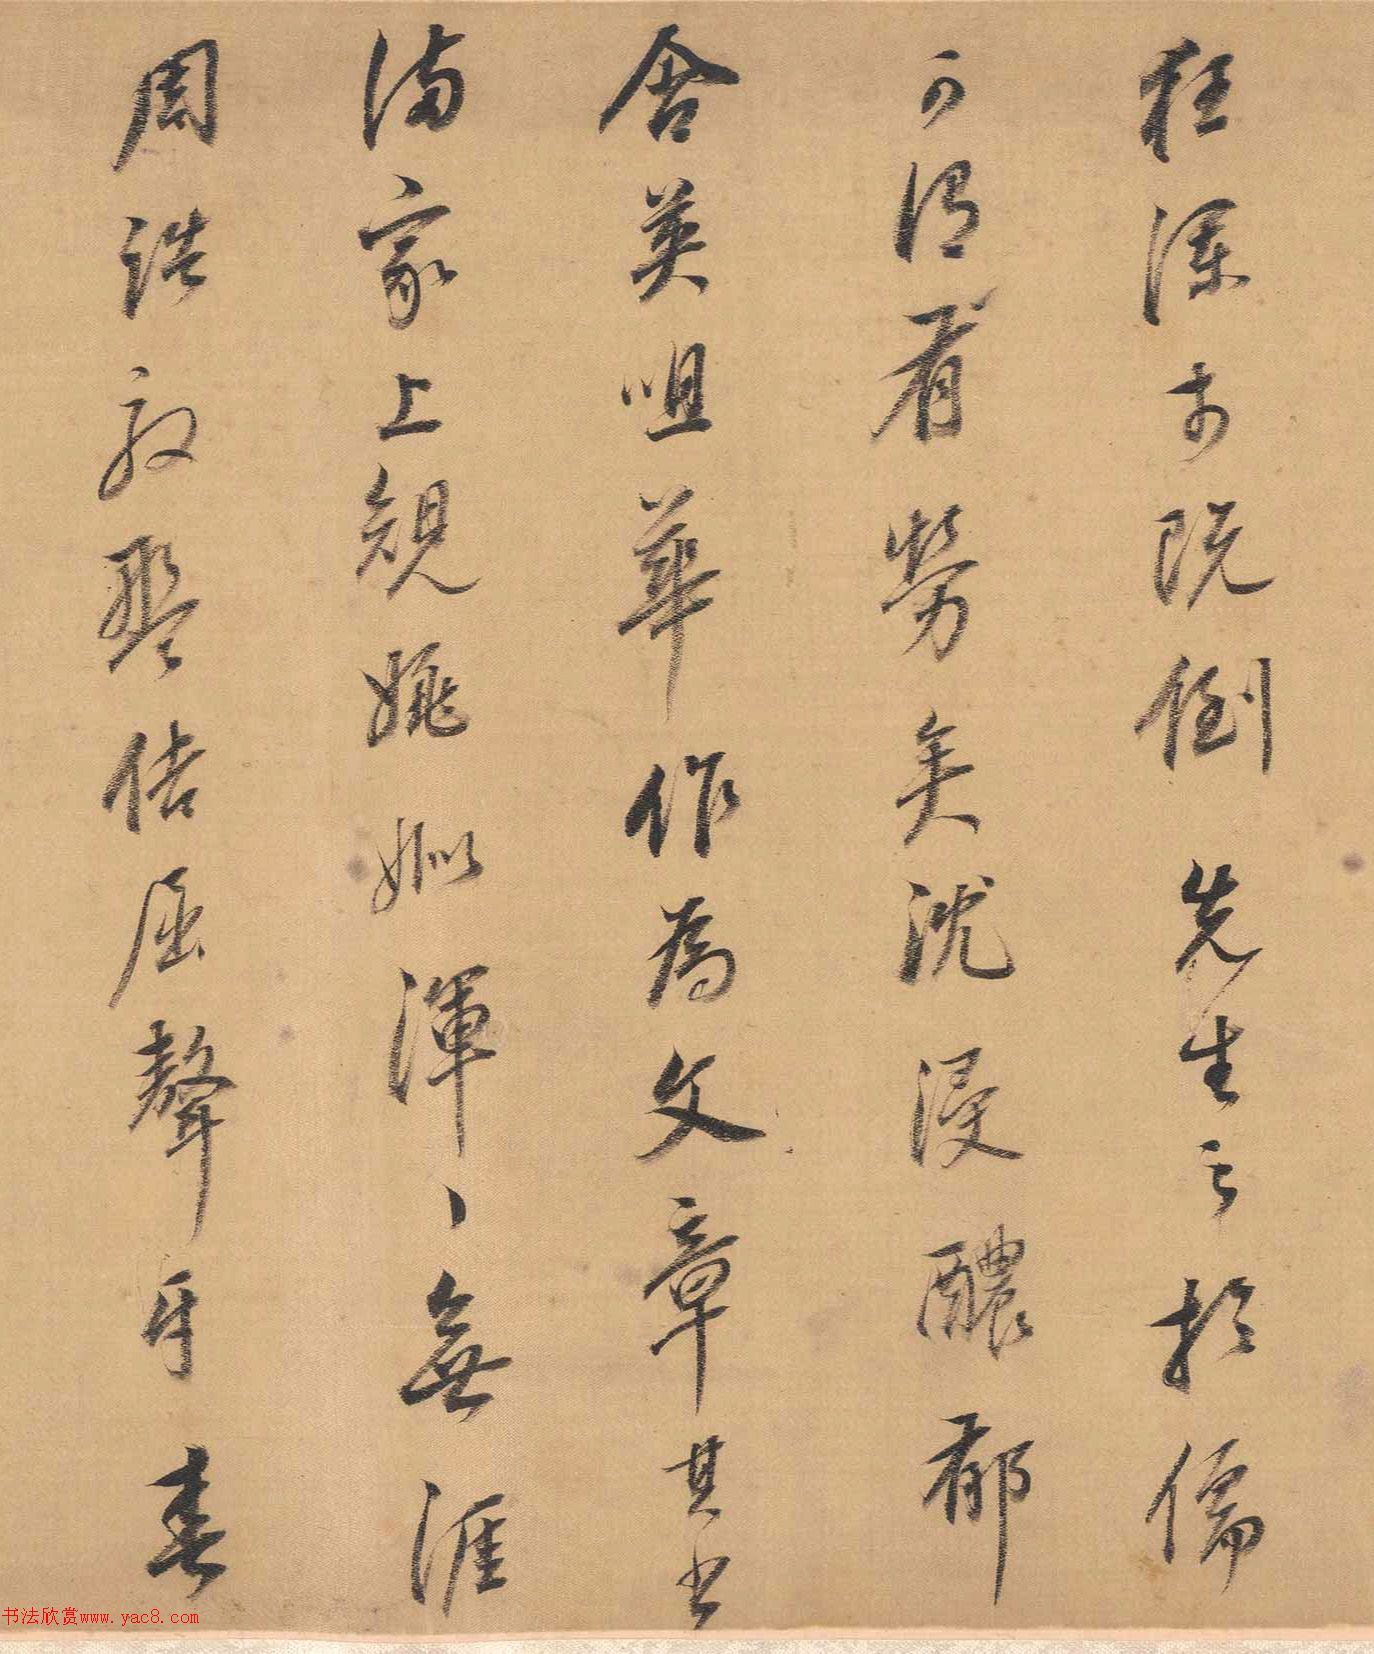 狂瀾於既倒先生之於儒
可謂有勞矣沈浸醲郁
含英咀華作為文章其書
滿家上規姚姒渾々無涯
周誥殷盤佶屈聱牙春
书法欣赏www.yac8.com